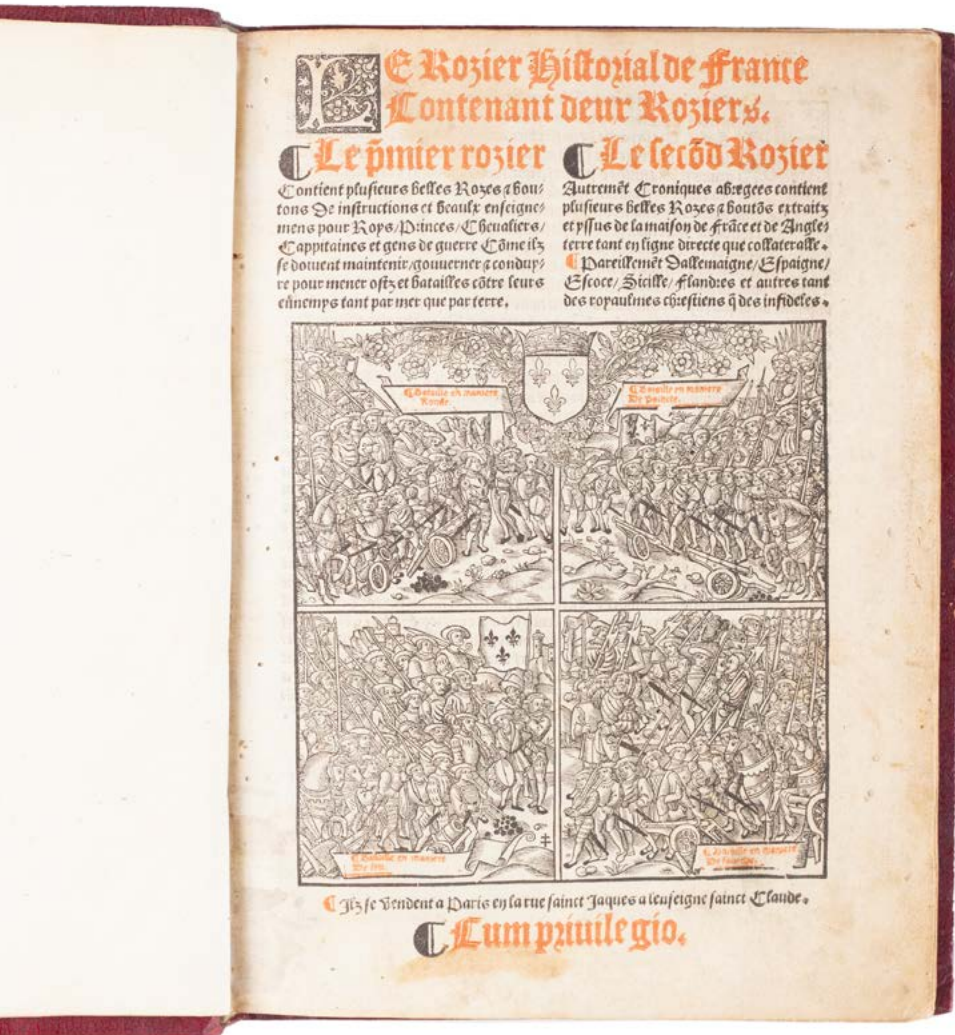 LE Rozier Historial de France
Contenant deux Roziers.
¶ Le p̃mier rozier
Contient plusieurs belles Rozes ⁊ bou⸗
tons De instructions et beaulx enseigne⸗
mens pour Roys/Princes/Chevaliers/
Cappitaines et gens de guerre Cõme ilz
se doiuent maintenir/gouuerner ⁊ conduy⸗
re pour mener ostz et batailles cõtre leurs
eñnemys tant par mer que par terre.
¶ Le secõd Rozier
Autremẽt Croniques abregees contient
plusieurs belles Rozes ⁊ boutõs extraitz
et yssus de la maison de frãce et de Angle⸗
terre tant en ligne directe que collateralle.
¶ Pareillemẽt Dallemaigne/Espaigne/
Escoce/Sicille/flandres et autres tant
des royaulmes chrestiens q̃ des infideles.
¶ Bataille en maniere
Ronde.
¶ Bataille en maniere
De poincte.
¶ Bataille en maniere
De
¶ Bataille en maniere
De
¶ Ilz se Vendent a Paris en la rue sainct Jaques a lenseigne sainct Claude.
¶ Cum priuilegio.